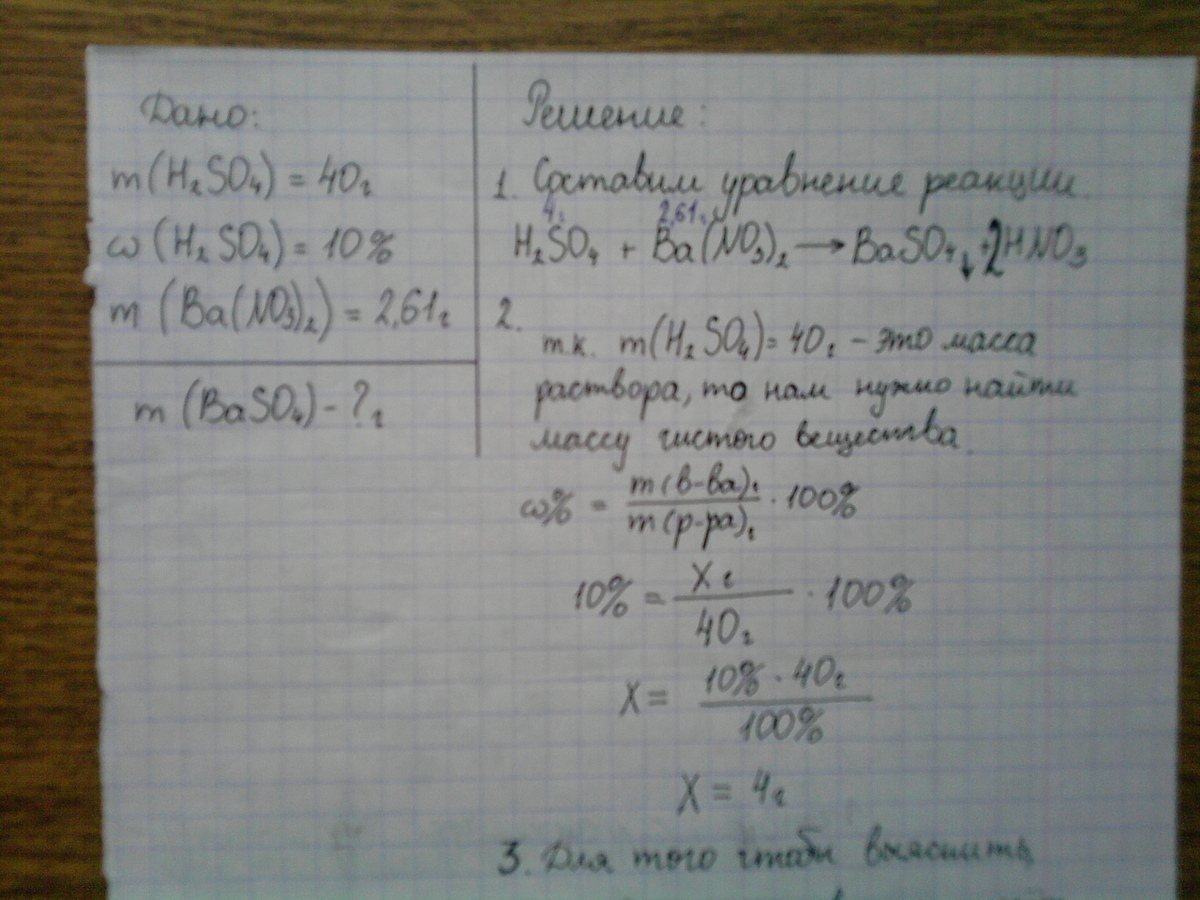 Дано:
m(H₂SO₄) = 40г
ω(H₂SO₄) = 10%
m(Ba(NO₃)₂) = 2,61г
m(BaSO₄) - ?г
Решение:
1. Составим уравнение реакции.
4г 2,61г
H₂SO₄ + Ba(NO₃)₂ → BaSO₄↓ + 2HNO₃
2.
т.к. m(H₂SO₄) = 40г – это масса
раствора, то нам нужно найти
массу чистого вещества.
ω% = m(в-ва)г / m(р-ра)г · 100%
10% = Xг / 40г · 100%
X = 10% · 40г / 100%
X = 4г
3. Для того чтобы выяснить,